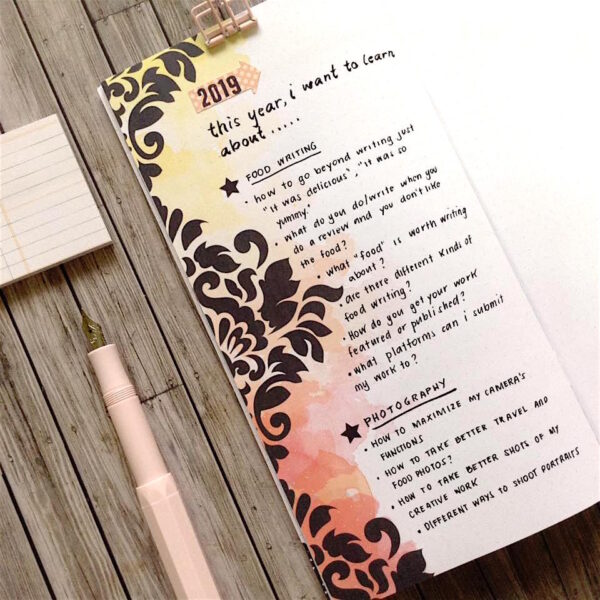 2019
this year, i want to learn
about.....
FOOD WRITING
• how to go beyond writing just
"it was delicious", "it was so
yummy."
• what do you do/write when you
do a review and you don't like
the food?
• what "food" is worth writing
about?
• are there different kinds of
food writing?
• How do you get your work
featured or published?
• what platforms can i submit
my work to?
PHOTOGRAPHY
• HOW TO MAXIMIZE MY CAMERA'S
FUNCTIONS
• HOW TO TAKE BETTER TRAVEL AND
FOOD PHOTOS?
• HOW TO TAKE BETTER SHOTS OF MY
CREATIVE WORK
• DIFFERENT WAYS TO SHOOT PORTRAITS